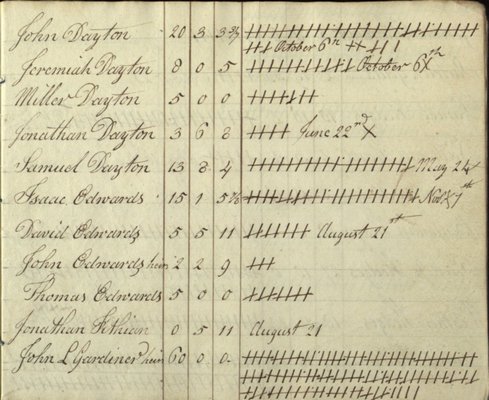 John Dayton 20 3 3 2/3
October 6th
Jeremiah Dayton 8 0 5 October 6th
Miller Dayton 5 0 0
Jonathan Dayton 3 6 8 June 22nd
Samuel Dayton 13 8 4 May 24
Isaac Edwards 15 1 5 Nov 7th
David Edwards 5 5 11 August 21st
John Edwards heir 2 2 9
Thomas Edwards 5 0 0
Jonathan Fithian 0 5 11 August 21
John L Gardiner heir 60 0 0